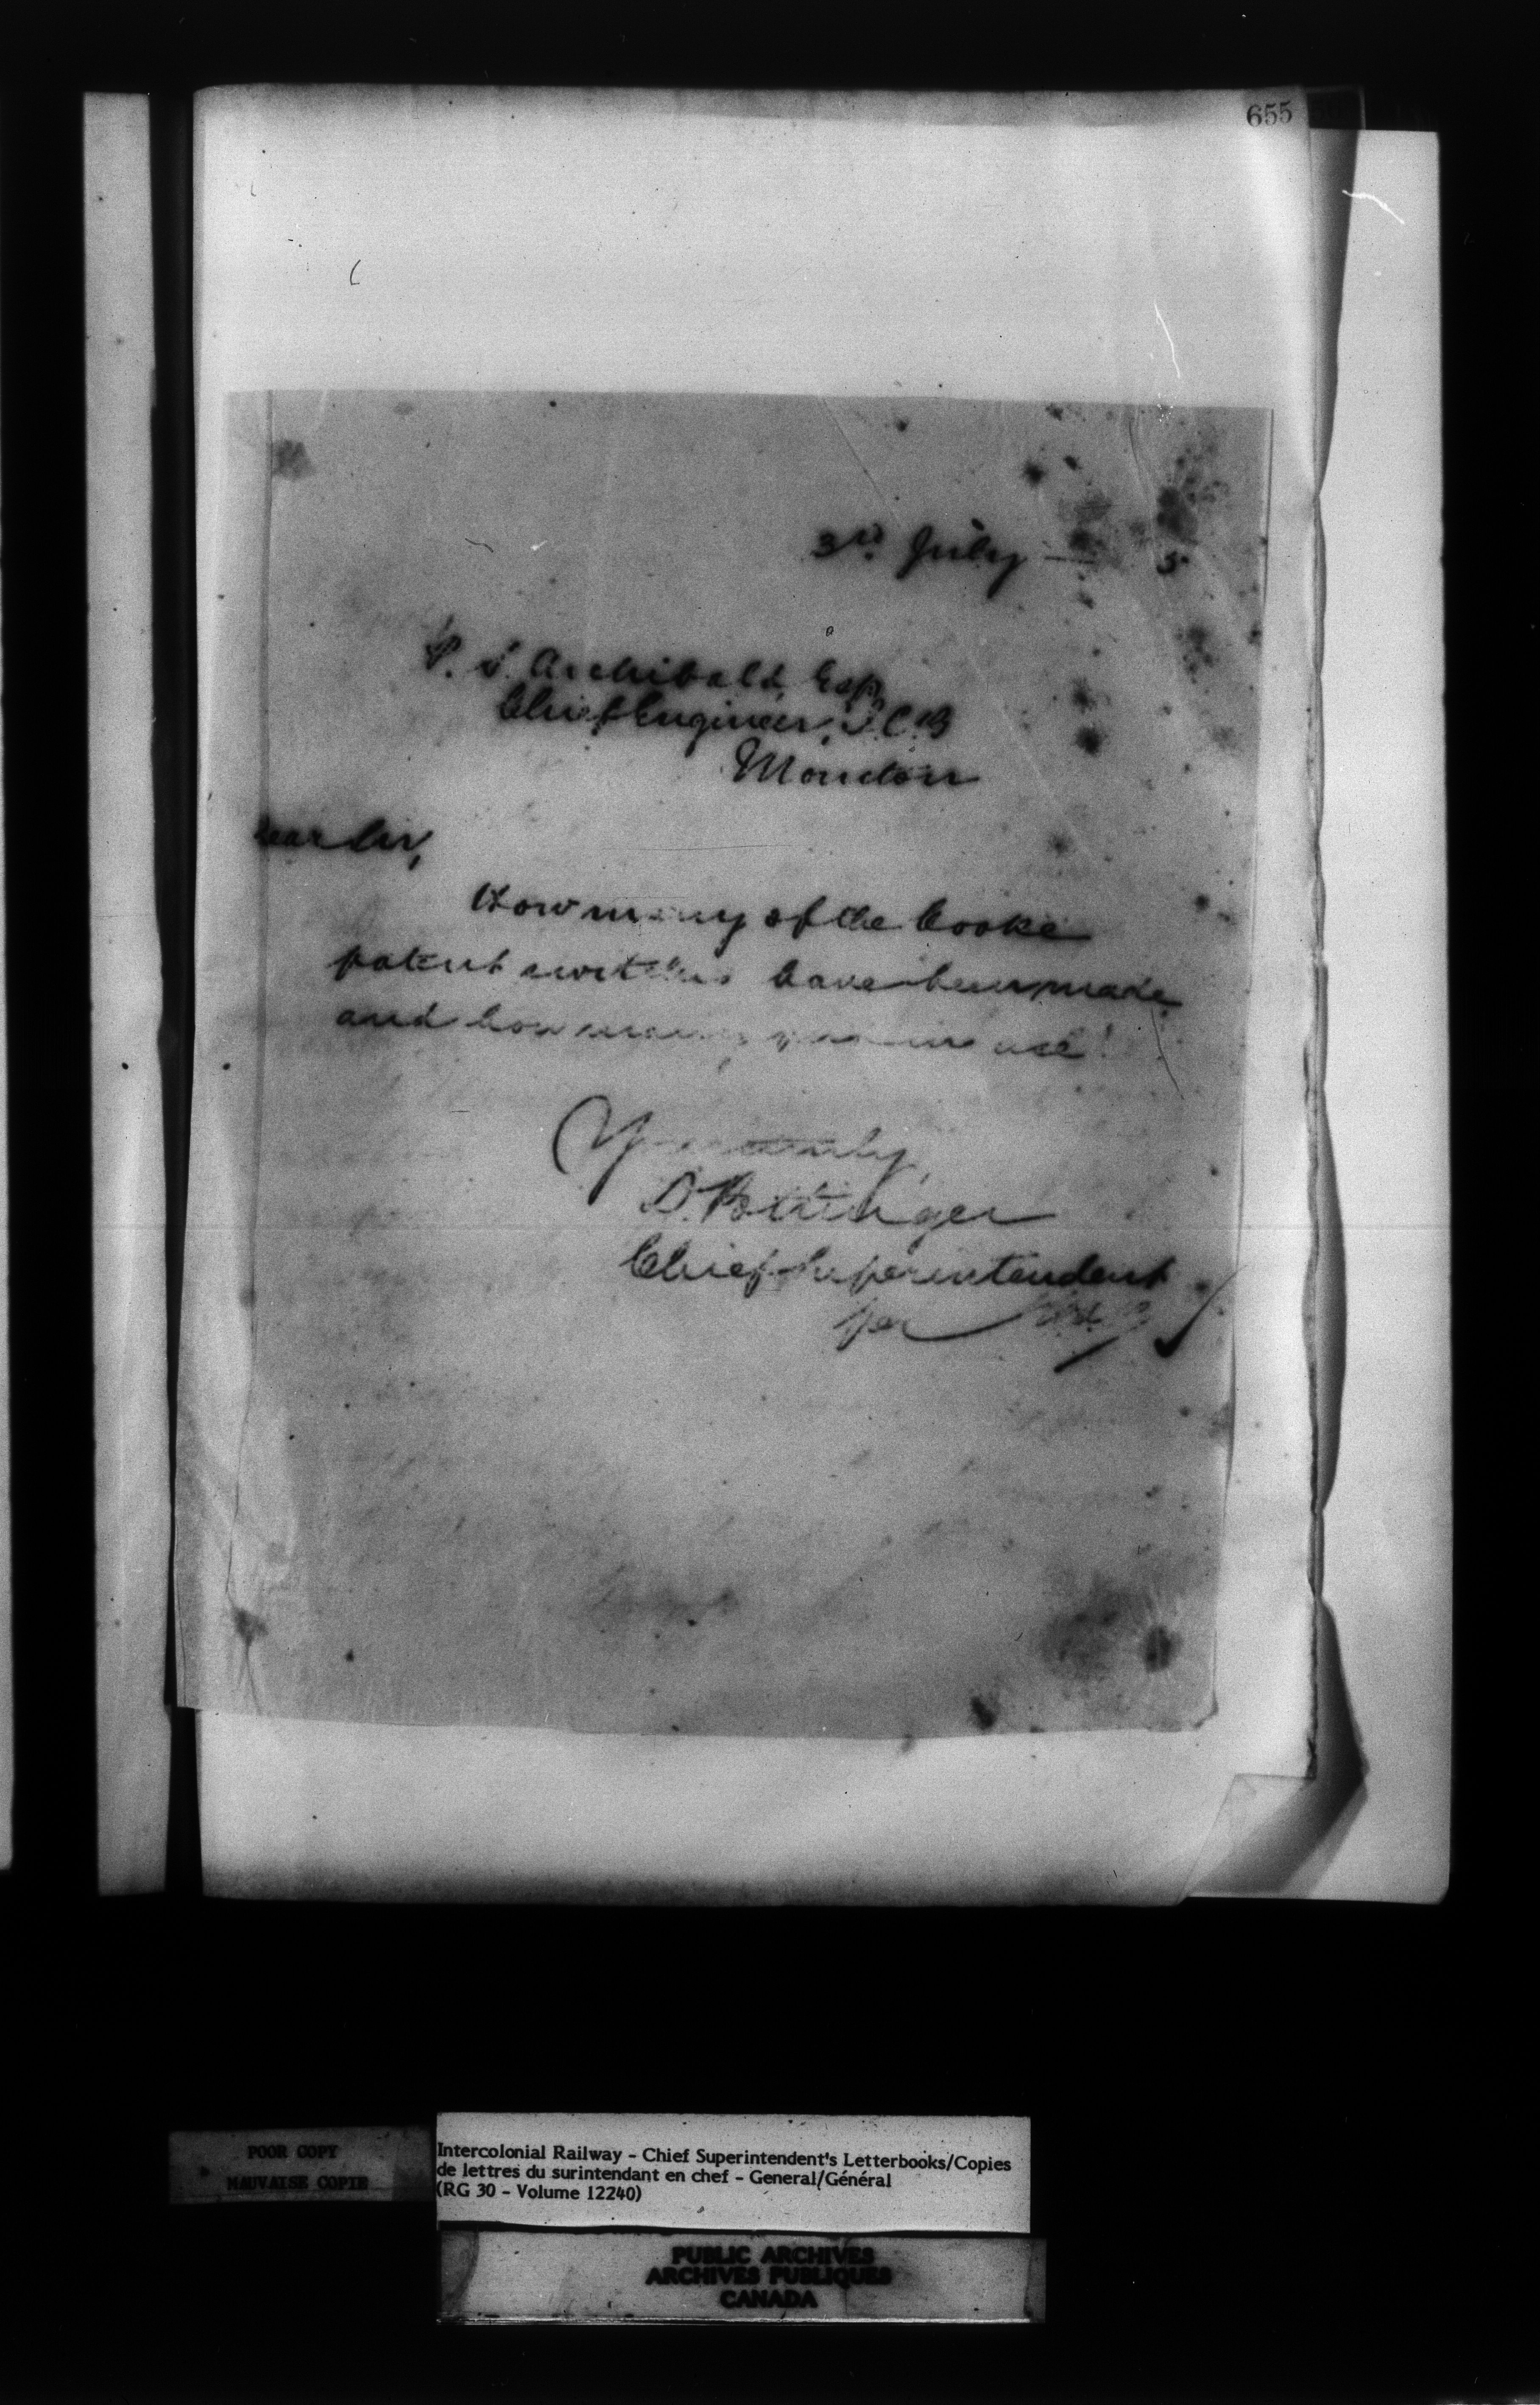 655
3rd July 5
P. S. Archibald, Esq
Chief Engineer, I.C.R
Moncton
Dear Sir,
How many of the Cooke
patent switches have been made
and how many are in use?
Yours truly,
D. Pottinger
Chief Superintendent
per
POOR COPY
MAUVAISE COPIE
Intercolonial Railway - Chief Superintendent's Letterbooks/Copies
de lettres du surintendant en chef - General/Général
(RG 30 - Volume 12240)
PUBLIC ARCHIVES
ARCHIVES PUBLIQUES
CANADA